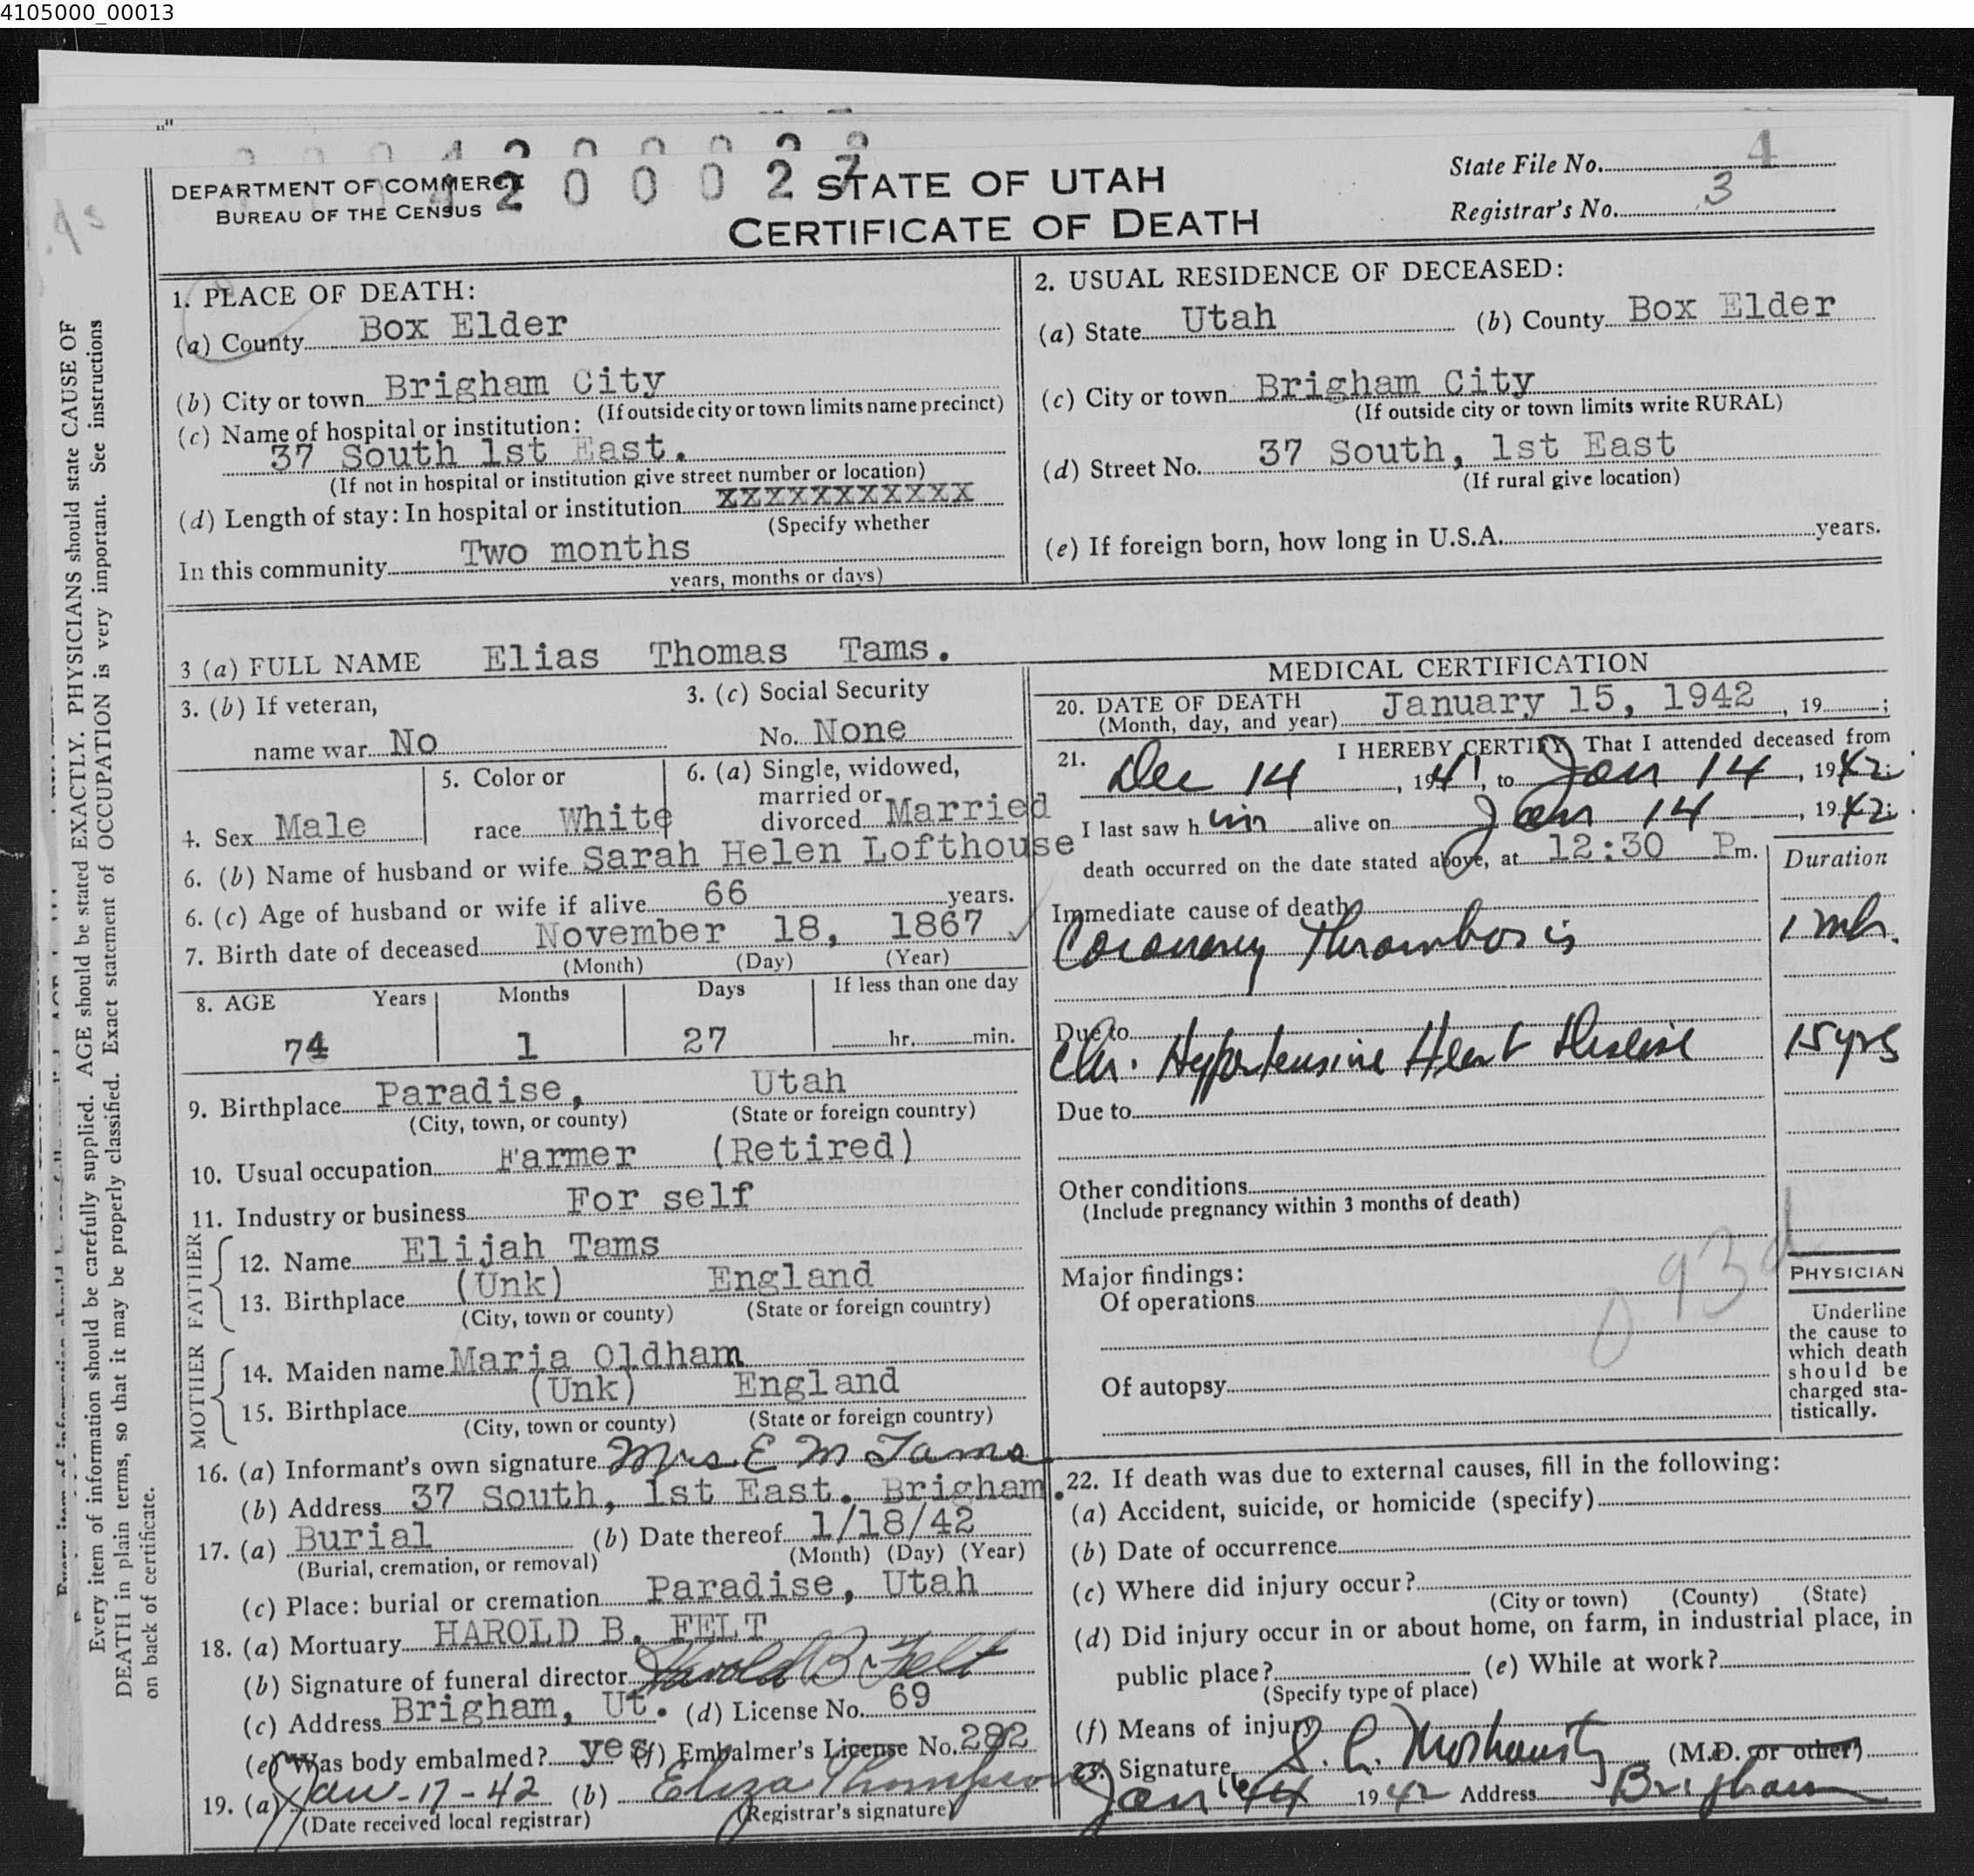 4105000_00013
4 2 0 0 0 2 7
DEPARTMENT OF COMMERCE
BUREAU OF THE CENSUS
STATE OF UTAH
CERTIFICATE OF DEATH
State File No. 4
Registrar's No. 3
Every item of information should be carefully supplied. AGE should be stated EXACTLY. PHYSICIANS should state CAUSE OF
DEATH in plain terms, so that it may be properly classified. Exact statement of OCCUPATION is very important. See instructions
on back of certificate.
1. PLACE OF DEATH:
(a) County Box Elder
(b) City or town Brigham City
(If outside city or town limits name precinct)
(c) Name of hospital or institution:
37 South 1st East.
(If not in hospital or institution give street number or location)
(d) Length of stay: In hospital or institution XXXXXXXXXXX
(Specify whether
In this community Two months
years, months or days)
2. USUAL RESIDENCE OF DECEASED:
(a) State Utah (b) County Box Elder
(c) City or town Brigham City
(If outside city or town limits write RURAL)
(d) Street No. 37 South, 1st East
(If rural give location)
(e) If foreign born, how long in U.S.A. years.
3 (a) FULL NAME Elias Thomas Tams.
3. (b) If veteran,
name war No
3. (c) Social Security
No. None
4. Sex Male
5. Color or
race White
6. (a) Single, widowed,
married or
divorced Married
6. (b) Name of husband or wife Sarah Helen Lofthouse
6. (c) Age of husband or wife if alive 66 years.
7. Birth date of deceased November 18, 1867
(Month) (Day) (Year)
8. AGE Years Months Days If less than one day
74 1 27 hr. min.
9. Birthplace Paradise, Utah
(City, town, or county) (State or foreign country)
10. Usual occupation Farmer (Retired)
11. Industry or business For self
FATHER
12. Name Elijah Tams
13. Birthplace (Unk) England
(City, town or county) (State or foreign country)
MOTHER
14. Maiden name Maria Oldham
15. Birthplace (Unk) England
(City, town or county) (State or foreign country)
16. (a) Informant's own signature Mrs E M Tams
(b) Address 37 South, 1st East. Brigham.
17. (a) Burial (b) Date thereof 1/18/42
(Burial, cremation, or removal) (Month) (Day) (Year)
(c) Place: burial or cremation Paradise, Utah
18. (a) Mortuary HAROLD B. FELT
(b) Signature of funeral director Harold B Felt
(c) Address Brigham, Ut. (d) License No. 69
(e) Was body embalmed? yes (f) Embalmer's License No. 282
19. (a) Jan-17-42 (b) Eliza Thompson
(Date received local registrar) (Registrar's signature)
MEDICAL CERTIFICATION
20. DATE OF DEATH
(Month, day, and year) January 15, 1942, 19 ;
21. I HEREBY CERTIFY That I attended deceased from
Dec 14, 1941, to Jan 14, 1942;
I last saw him alive on Jan 14, 1942;
death occurred on the date stated above, at 12:30 P m.
Duration
Immediate cause of death
Coronary Thrombosis 1 mh.
Due to
Chr. Hypertensive Heart Disease 15 yrs
Due to
Other conditions
(Include pregnancy within 3 months of death)
Major findings:
Of operations
93d
Of autopsy
PHYSICIAN
Underline
the cause to
which death
should be
charged sta-
tistically.
22. If death was due to external causes, fill in the following:
(a) Accident, suicide, or homicide (specify)
(b) Date of occurrence
(c) Where did injury occur?
(City or town) (County) (State)
(d) Did injury occur in or about home, on farm, in industrial place, in
public place? (e) While at work?
(Specify type of place)
(f) Means of injury
23. Signature (M.D. or other)
Jan 16 1942 Address Brigham